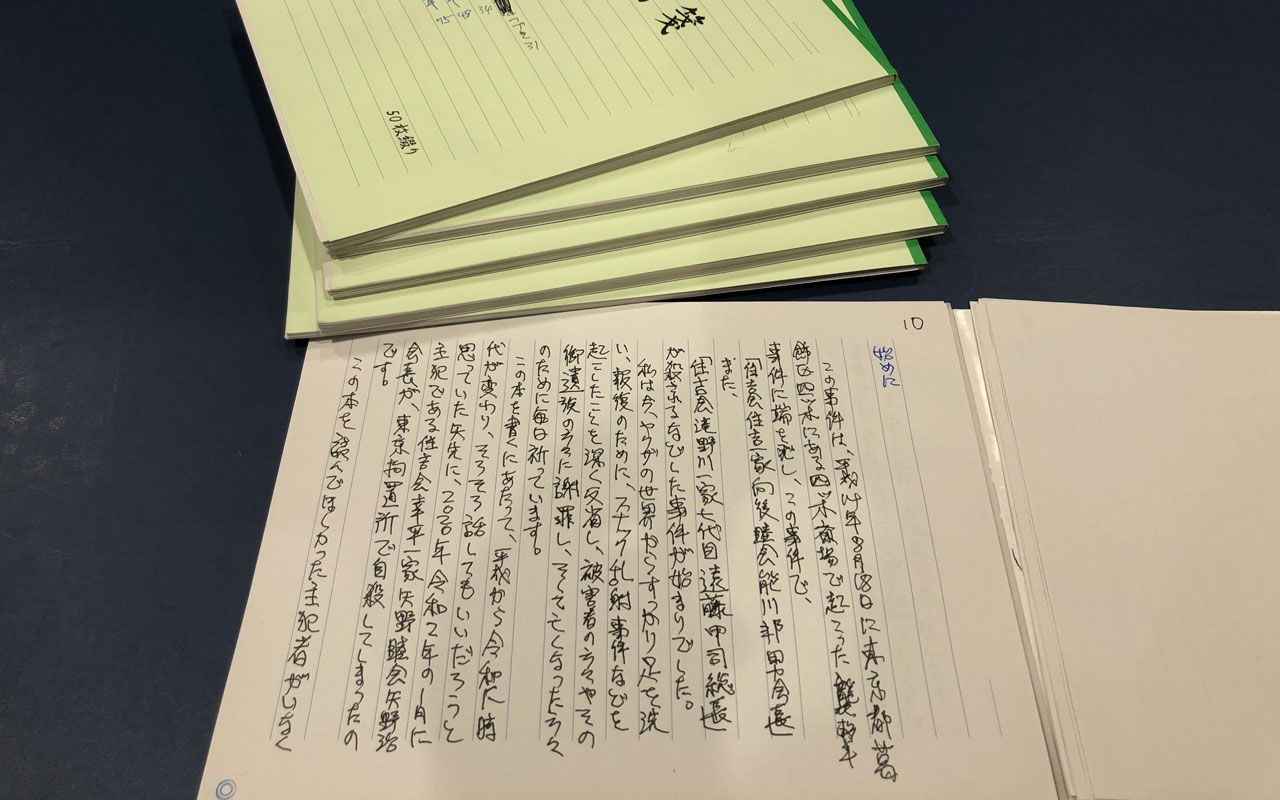 箋
75 48 34
31
50枚綴り
10
始めに
この事件は、平成14年8月18日に東京都葛
飾区四ツ木にある四ツ木斎場で起こった襲撃
事件に端を発し、この事件で、
「住吉会住吉一家向後睦会熊川邦男会長」
また、
「住吉会滝野川一家七代目遠藤甲司総長」
が殺されるなどした事件が始まりでした。
私は今、ヤクザの世界からすっかり足を洗
い、報復のために、スナック乱射事件などを
起こしたことを深く反省し、被害者の方々やその
御遺族の方々に謝罪し、そして亡くなった方々
のために毎日祈っています。
この本を書くにあたって、平成から令和に時
代が変わり、そろそろ話してもいいだろうと
思っていた矢先に、2020年令和2年の1月に
主犯である住吉会幸平一家矢野睦会矢野治
会長が、東京拘置所で自殺してしまったの
です。
この本を読んでほしかった主犯者がいなく